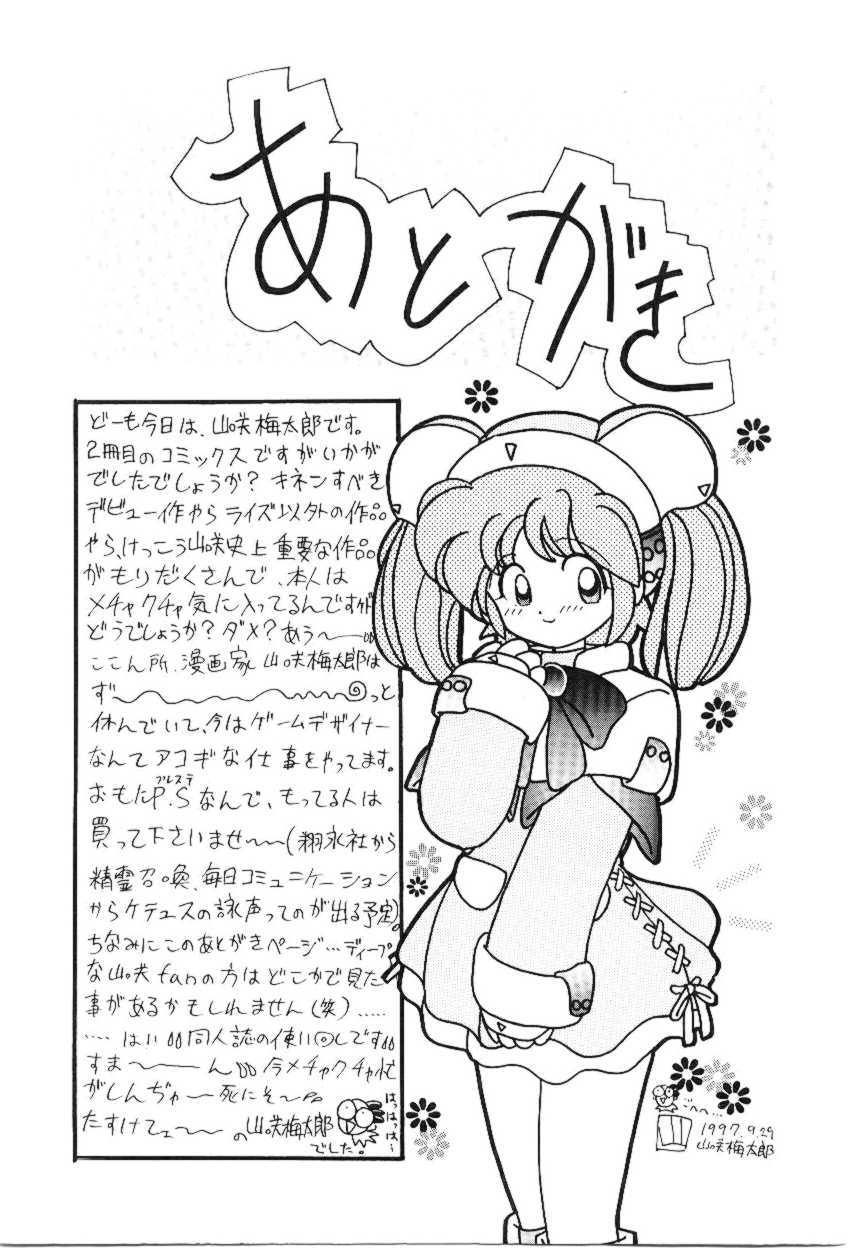 あとがき
どーも今日は、山咲梅太郎です。
2冊目のコミックスですがいかが
でしたでしょうか？ キネンすべき
デビュー作やら ライズ以外の作品
やら、けっこう山咲史上 重要な作品
がもりだくさんで、本人は
メチャクチャ気に入ってるんですけど
どうでしょうか？ダメ？あぅ〜
ここん所、漫画家 山咲梅太郎は
ず〜〜〜っと
休んでいて、今はゲームデザイナー
なんてアコギな仕事をやってます。
おもたP.Sなんで、もってる人は
プレステ
買って下さいませ〜〜(翔泳社から
精霊召喚、毎日コミュニケーション
からケテュースの詠声ってのが出る予定)。
ちなみにこのあとがきページ…ディープ
な山咲fanの方はどこかで見た
事があるかもしれません(笑)……
…. はい 同人誌の使い回しです
すま〜〜ん 今メチャクチャ忙
がしんぢゃ〜死にそ〜
たすけてェ〜 の山咲梅太郎
でした。
はっはっはっ…
ごへへ…
山
1997.9.29
山咲梅太郎